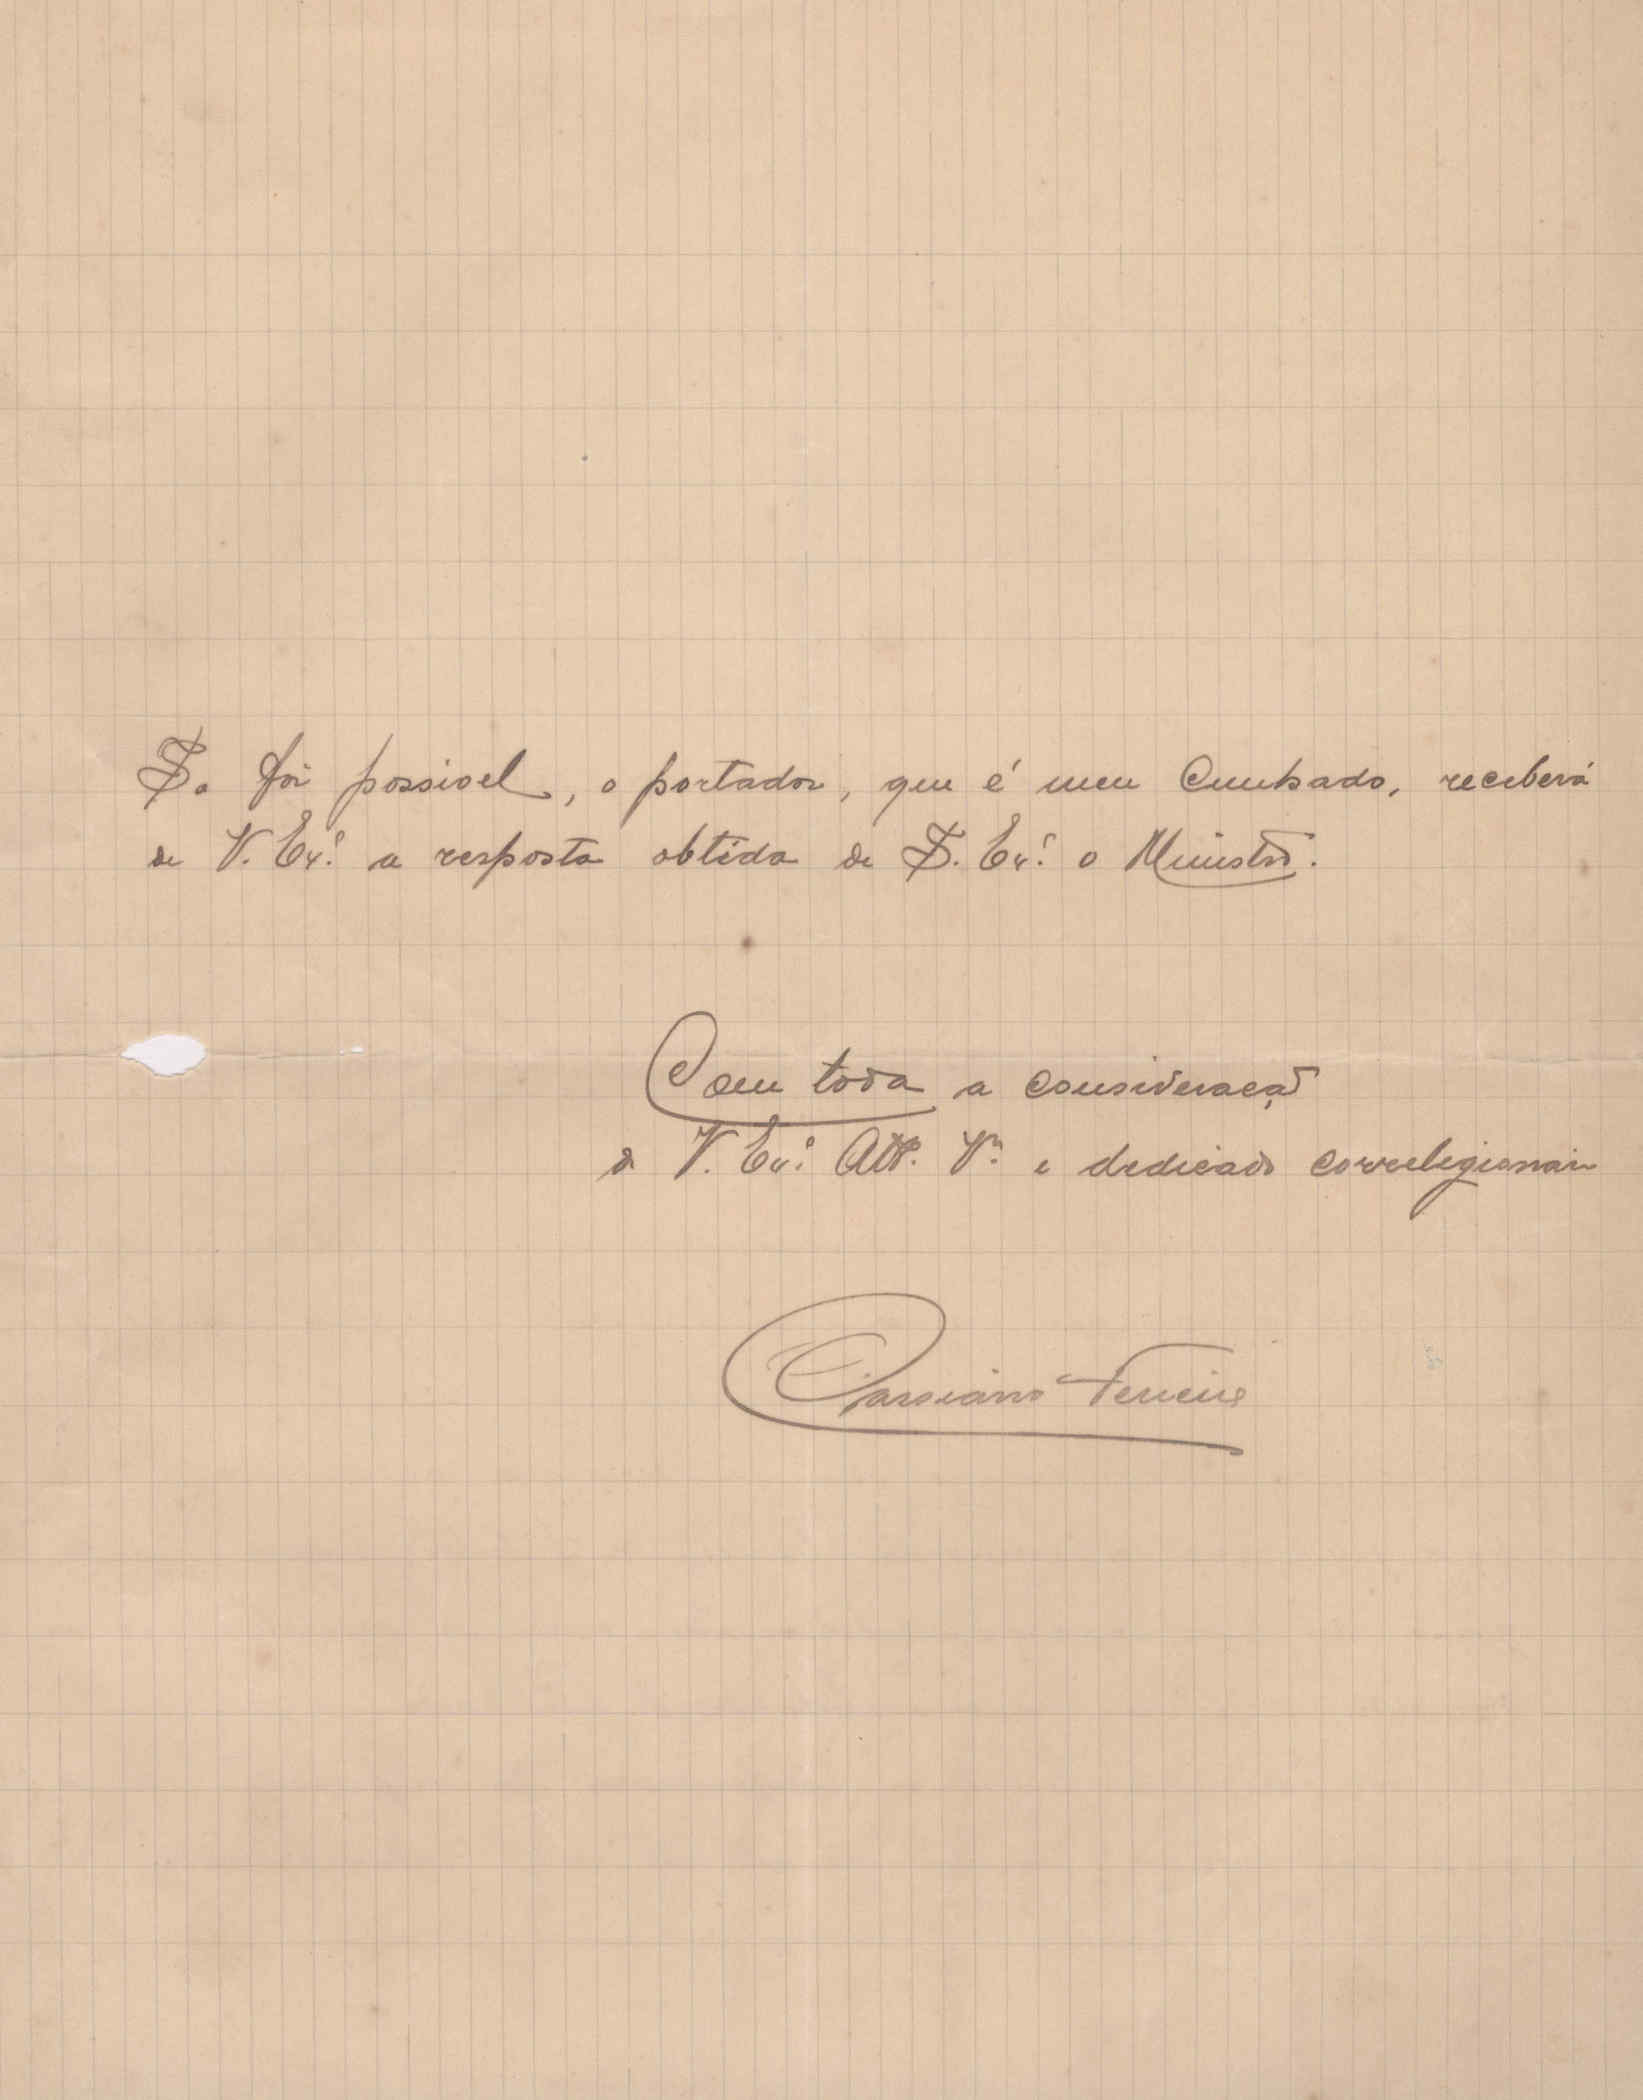 Se for possivel, o portador, que é meu cunhado, receberá
de V. Exª a resposta obtida de S. Exª o Ministro.
Com toda a consideração
de V. Exª Attº. Vºr e dedicado correligionario
Cassiano Ferreira